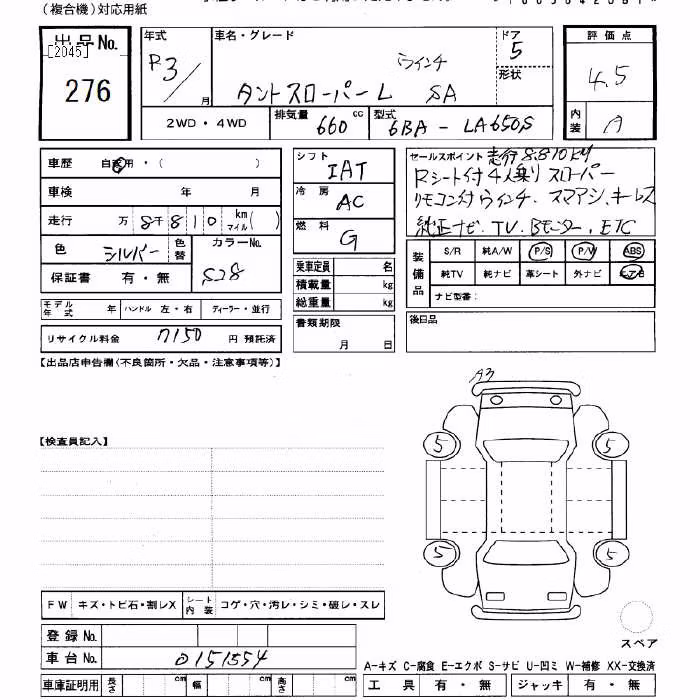 (複合機)対応用紙
出品No. 年式 車名・グレード ドア 評価点
[2045]
276 R3/月 ウインチ 5 形状 4.5
タントスローパーL SA
2WD・4WD 排気量 660 cc 型式 6BA-LA650S 内装 A
車歴 自家用・( ) シフト IAT セールスポイント 走行8,810km
車検 年 月 冷房 AC Rシート付4人乗り スローパー
リモコン付ウィンチ、スマアシ、キーレス
走行 万 8千810 km マイル( ) 燃料 G 純正ナビ、TV、Bモニター、ETC
色 シルバー 色替 カラーNo. S28
保証書 有・無
乗車定員 名 装備品 S/R 純A/W P/S P/W ABS
積載量 kg 純TV 純ナビ 革シート 外ナビ エアB
総重量 kg ナビ型番:
モデル年式 年 ハンドル 左・右 ディーラー・並行
書類期限 月 日 後日品
リサイクル料金 7150 円 預託済
【出品店申告欄(不良箇所・欠品・注意事項等)】
A3
【検査員記入】
5 5
5 5
FW キズ・トビ石・割レX シート内装 コゲ・穴・汚レ・シミ・破レ・スレ
登録No. スペア
車台No. 0151554
A-キズ C-腐食 E-エクボ S-サビ U-凹ミ W-補修 XX-交換済
車庫証明用 長さ cm 幅 cm 高さ cm 工具 有・無 ジャッキ 有・無